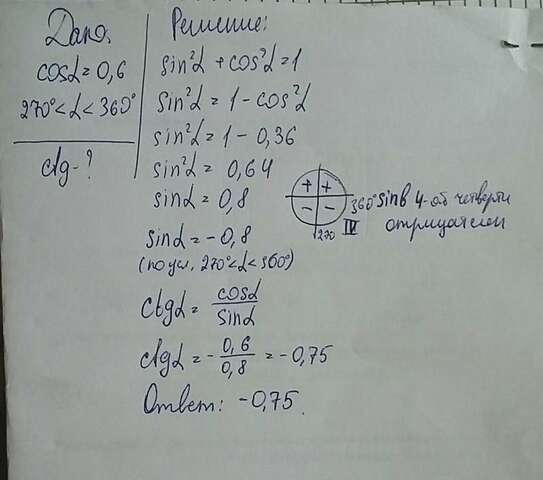 Дано:
cosα = 0,6
270° < α < 360°
ctg - ?
Решение:
sin²α + cos²α = 1
sin²α = 1 - cos²α
sin²α = 1 - 0,36
sin²α = 0,64
sinα = 0,8
sinα = -0,8
(по усл. 270° < α < 360°)
+ +
- -
360°
270
IV
sin в 4-ой четверти
отрицателен
ctgα = cosα / sinα
ctgα = - 0,6 / 0,8 = -0,75
Ответ: -0,75.